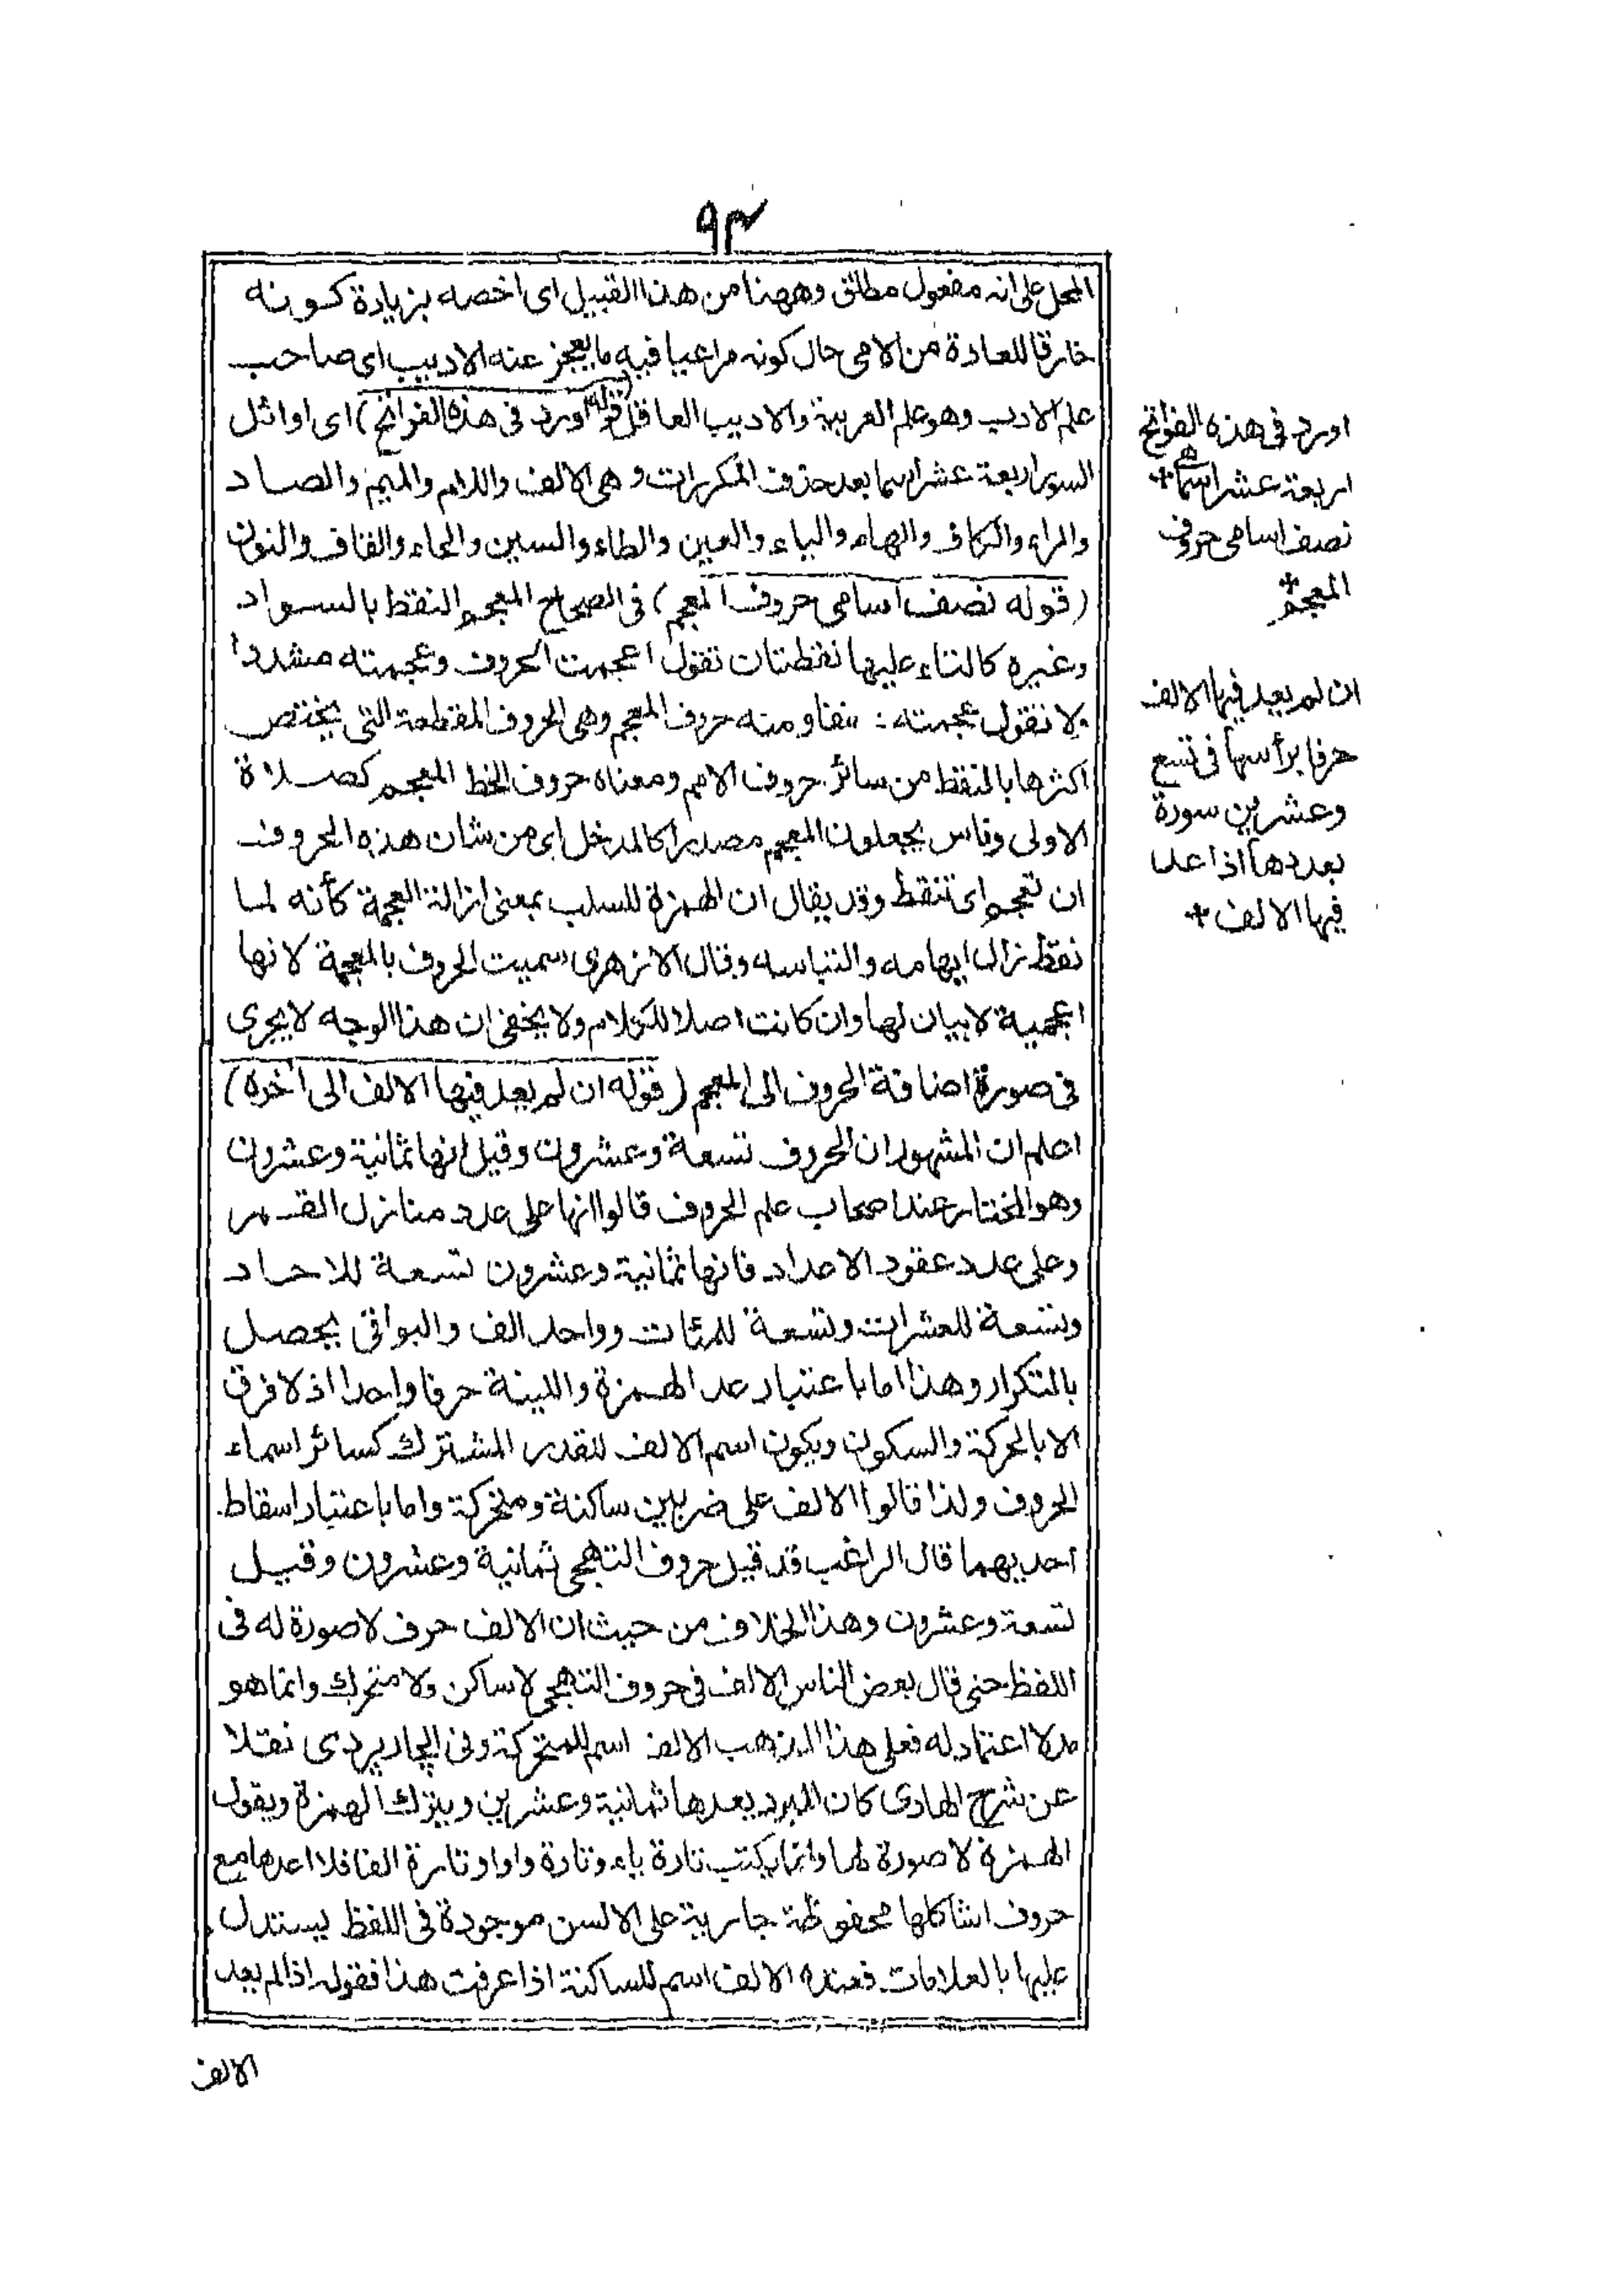 ٩٣
المحل على انه مفعول مطلق وههنا من هذا القبيل اى اخصه بزيادة كونه
خارقا للعادة من الامى حال كونه مراعيا فيه ما يعجز عنه الاديب اى صاحب
علم الادب وهو علم العربية والاديب العاقل (قوله اورد فى هذه الفواتح) اى اوائل
السور اربعة عشر اسما بعد حذف المكررات وهى الالف واللام والميم والصاد
والراء والكاف والهاء والياء والعين والطاء والسين والحاء والقاف والنون
(قوله نصف اسامى حروف المعجم) فى الصحاح المعجم النقط بالسواد
وغيره كالتاء عليها نقطتان تقول اعجمت الحروف وعجمته مشددا
ولا تقول عجمته ومنه حروف المعجم وهى الحروف المقطعة التى يختص
اكثرها بالنقط من سائر حروف الامم ومعناه حروف الخط المعجم كصلاة
الاولى وناس يجعلون المعجم مصدرا كالمدخل اى من شان هذه الحروف
ان تعجم اى تنقط وقد يقال ان الهمزة للسلب بمعنى ازالة العجمة كأنه لما
نقط زال ابهامه والتباسه وقال الازهرى سميت الحروف بالمعجمة لانها
اعجمية لا بيان لها وان كانت اصلا للكلام ولا يخفى ان هذا الوجه لا يجرى
فى صورة اضافة الحروف الى المعجم (قوله ان لم يعد فيها الالف الى آخره)
اعلم ان المشهور ان الحروف تسعة وعشرون وقيل انها ثمانية وعشرون
وهو المختار عند اصحاب علم الحروف قالوا انها على عدد منازل القمر
وعلى عدد عقود الاعداد فانها ثمانية وعشرون تسعة للاحاد
وتسعة للعشرات وتسعة للمئات وواحد الف والبواقى يحصل
بالتكرار وهذا اما باعتبار عد الهمزة واللينة حرفا واحدا اذ لا فرق
الا بالحركة والسكون ويكون اسم الالف للقدر المشترك كسائر اسماء
الحروف ولذا قالوا الالف على ضربين ساكنة ومتحركة واما باعتبار اسقاط
احديهما قال الراغب قد قيل حروف التهجى ثمانية وعشرون وقيل
تسعة وعشرون وهذا الخلاف من حيث ان الالف حرف لا صورة له فى
اللفظ حتى قال بعض الناس الالف فى حروف التهجى لا ساكن ولا متحرك وانما هو
مد لا اعتماد له فعلى هذا المذهب الالف اسم للمتحركة وفى الجاربردى نقلا
عن شرح الهادى كان المبرد يعدها ثمانية وعشرين ويترك الهمزة ويقول
الهمزة لا صورة لها وانما يكتب تارة ياء وتارة واوا وتارة الفا فلا اعدها مع
حروف اشكالها محفوظة جارية على الالسن موجودة فى اللفظ يستدل
عليها بالعلامات فعنده الالف اسم للساكنة اذا عرفت هذا فقوله اذا لم يعد
الالف
اورد فى هذه الفواتح
اربعة عشر اسما
نصف اسامى حروف
المعجم
ان لم يعد فيها الالف
حرفا برأسها فى تسع
وعشرين سورة
بعددها اذا عد
فيها الالف